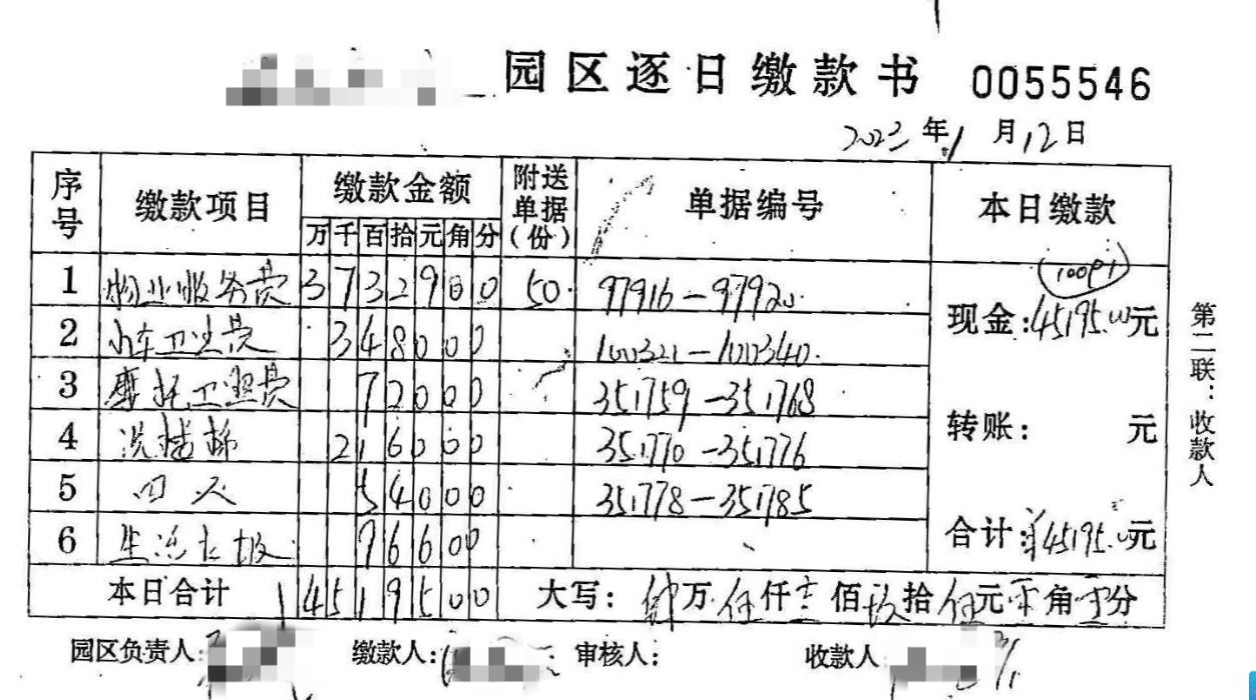 园区逐日缴款书 0055546
2023年1月12日
序号 缴款项目 缴款金额 附送单据(份) 单据编号 本日缴款
万 千 百 拾 元 角 分
1 物业服务费 3 7 3 2 9 0 0 50 97916-97920
2 小车卫生费 3 4 8 0 0 0 100321-100340
3 摩托卫生费 7 2 0 0 0 351759-351768
4 2 1 6 0 0 0 351770-351776
5 5 4 0 0 0 351778-351785
6 生活垃圾 9 6 6 0 0
现金:45195.00元
转账: 元
合计:¥45195.00元
本日合计 4 5 1 9 5 0 0 大写:肆万伍仟壹佰玖拾伍元零角零分
园区负责人: 缴款人: 审核人: 收款人
第二联:收款人